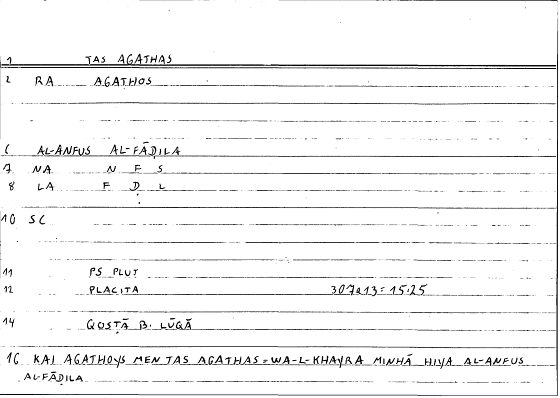 1 TAS AGATHAS
2 RA AGATHOS
6 AL-ANFUS AL-FĀḌILA
7 NA N F S
8 LA F Ḍ L
10 SC
11 PS PLUT
12 PLACITA 307a13 = 15.25
14 QOSṬĀ B. LŪQĀ
16 KAI AGATHOYS MEN TAS AGATHAS = WA-L-KHAYRA MINHĀ HIYA AL-ANFUS
AL-FĀḌILA